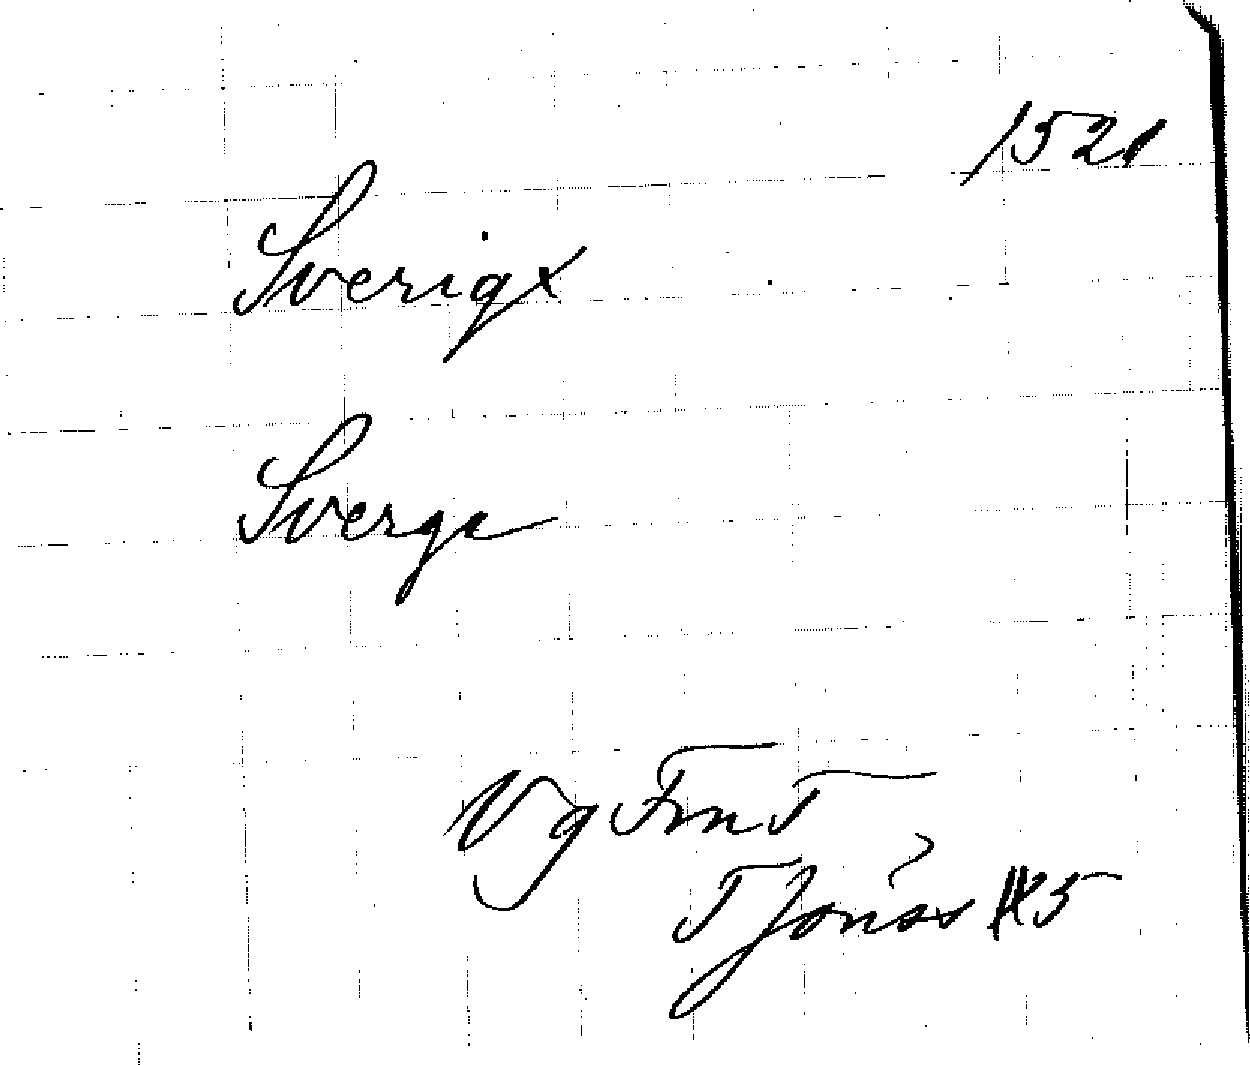 1521
Sverige
Sverge
Vg FrnT
T Jonas